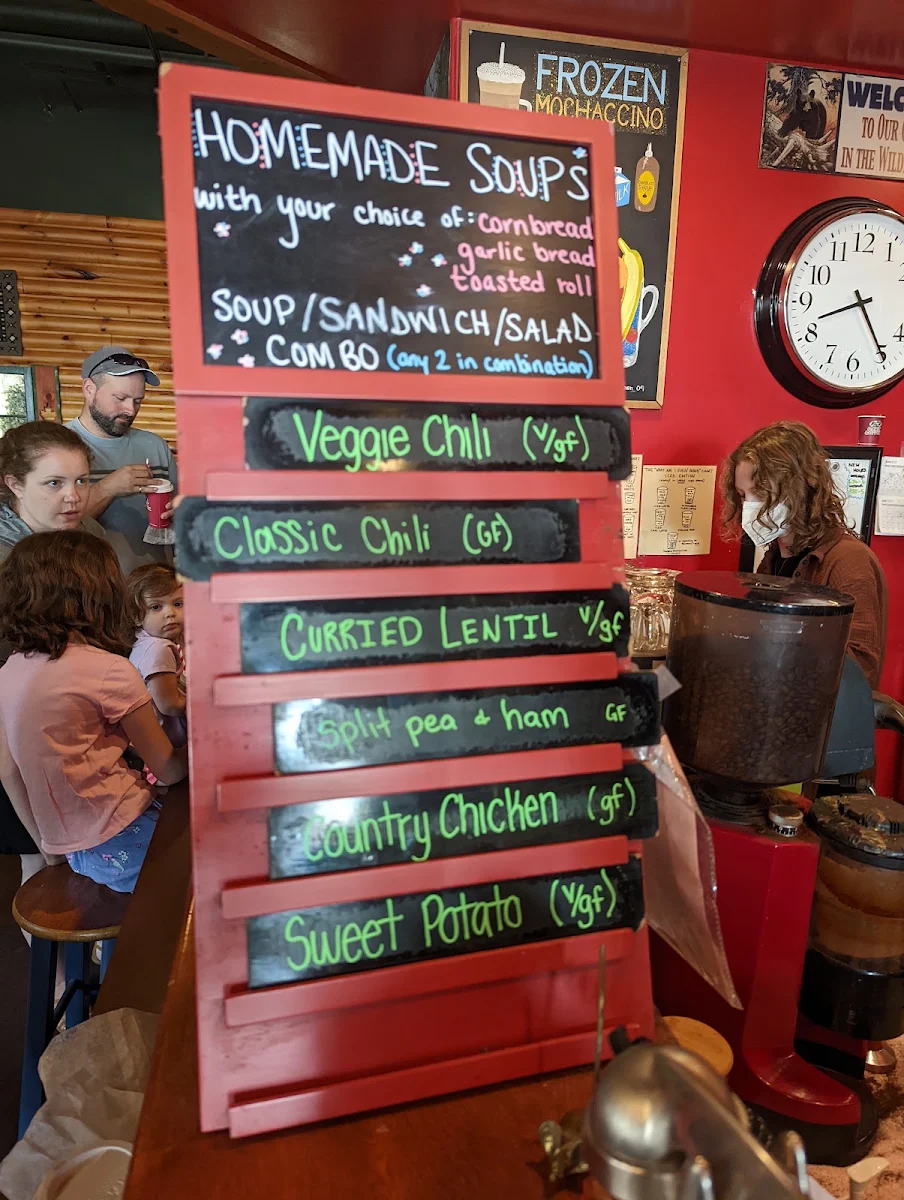 HOMEMADE SOUPS
with your choice of: cornbread
garlic bread
toasted roll
SOUP/SANDWICH/SALAD
COMBO (any 2 in combination)
Veggie Chili (v/gf)
Classic Chili (GF)
CURRIED LENTIL v/gf
Split pea & ham GF
Country Chicken (gf)
Sweet Potato (v/gf)
FROZEN
MOCHACCINO
WELC
TO OUR
IN THE WILD
11 12 1
10
9
8
7 6 5
4